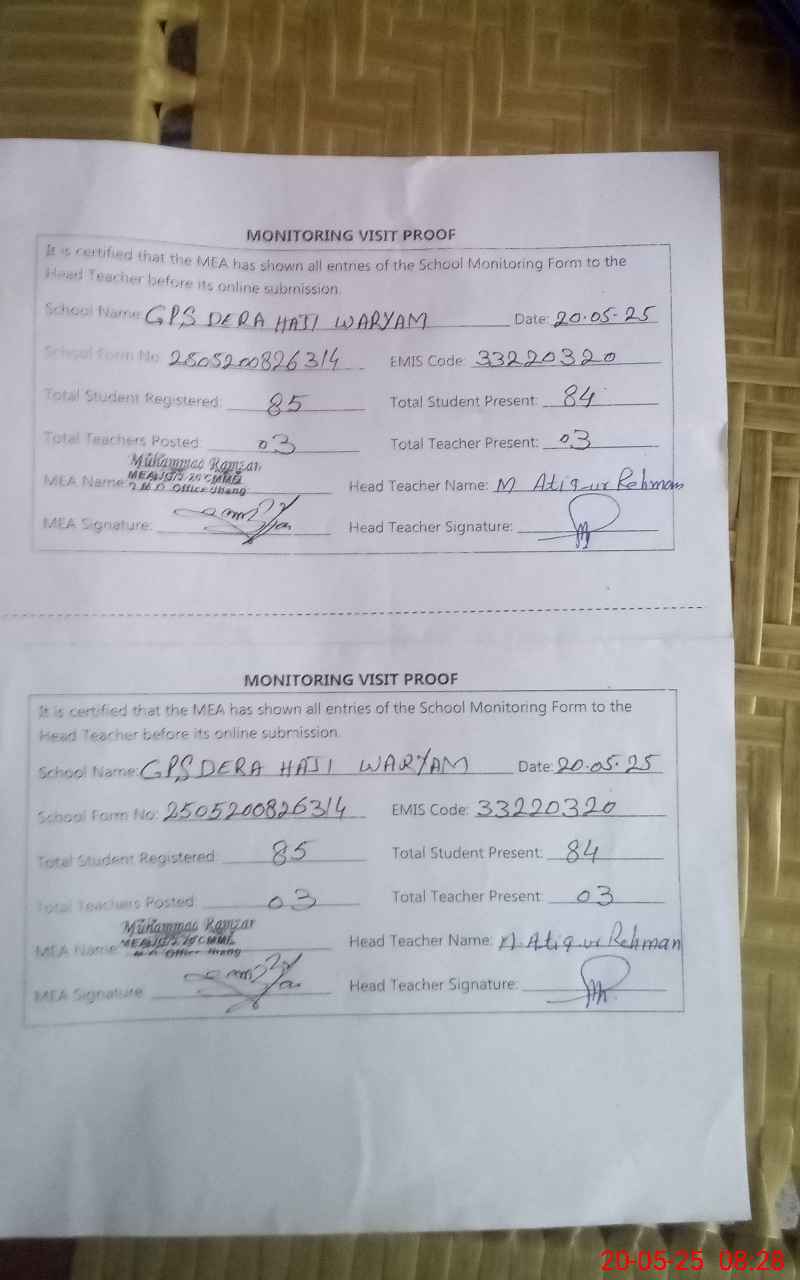 MONITORING VISIT PROOF
It is certified that the MEA has shown all entries of the School Monitoring Form to the
Head Teacher before its online submission.
School Name: GPS DERA HAJI WARYAM Date: 20.05.25
School Form No: 2505200826314 EMIS Code: 33220320
Total Student Registered: 85 Total Student Present: 84
Total Teachers Posted: 03 Total Teacher Present: 03
Muhammad Ramzan
MEA Name: Head Teacher Name: M Atiq ur Rehman
Office Jhang
MEA Signature: Head Teacher Signature:
MONITORING VISIT PROOF
It is certified that the MEA has shown all entries of the School Monitoring Form to the
Head Teacher before its online submission.
School Name: GPS DERA HAJI WARYAM Date: 20.05.25
School Form No: 2505200826314 EMIS Code: 33220320
Total Student Registered: 85 Total Student Present: 84
Total Teachers Posted: 03 Total Teacher Present: 03
Muhammad Ramzan
MEA Name: Head Teacher Name: M Atiq ur Rehman
Office Jhang
MEA Signature: Head Teacher Signature:
20-05-25 08:28